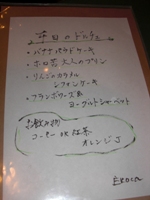 本日のドルチェ
・バナナパウンドケーキ
・ホロ苦 大人のプリン
・りんごのカラメル
シフォンケーキ
・フランボワーズ
ヨーグルトシャーベット
お飲み物
コーヒー or 紅茶
オレンジJ